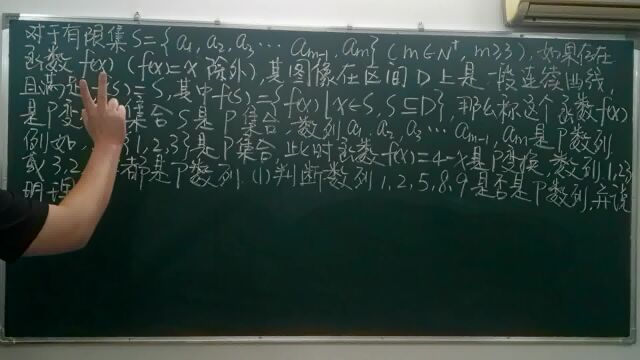 对于有限集S={a₁,a₂,a₃…a_{m-1},a_m}(m∈N*,m≥3),如果存在
函数f(x)(f(x)=x除外),其图像在区间D上是一段连续曲线,
且满足f(S)=S,其中f(S)={f(x)|x∈S,S⊆D},那么称这个函数f(x)
是P变 集合S是P集合,数列a₁,a₂,a₃…a_{m-1},a_m是P数列.
例如 {1,2,3}是P集合,此时函数f(x)=4-x是P变换,数列1,2,3
或3,2, 都是P数列.(1)判断数列1,2,5,8,9是否是P数列,并说
明理